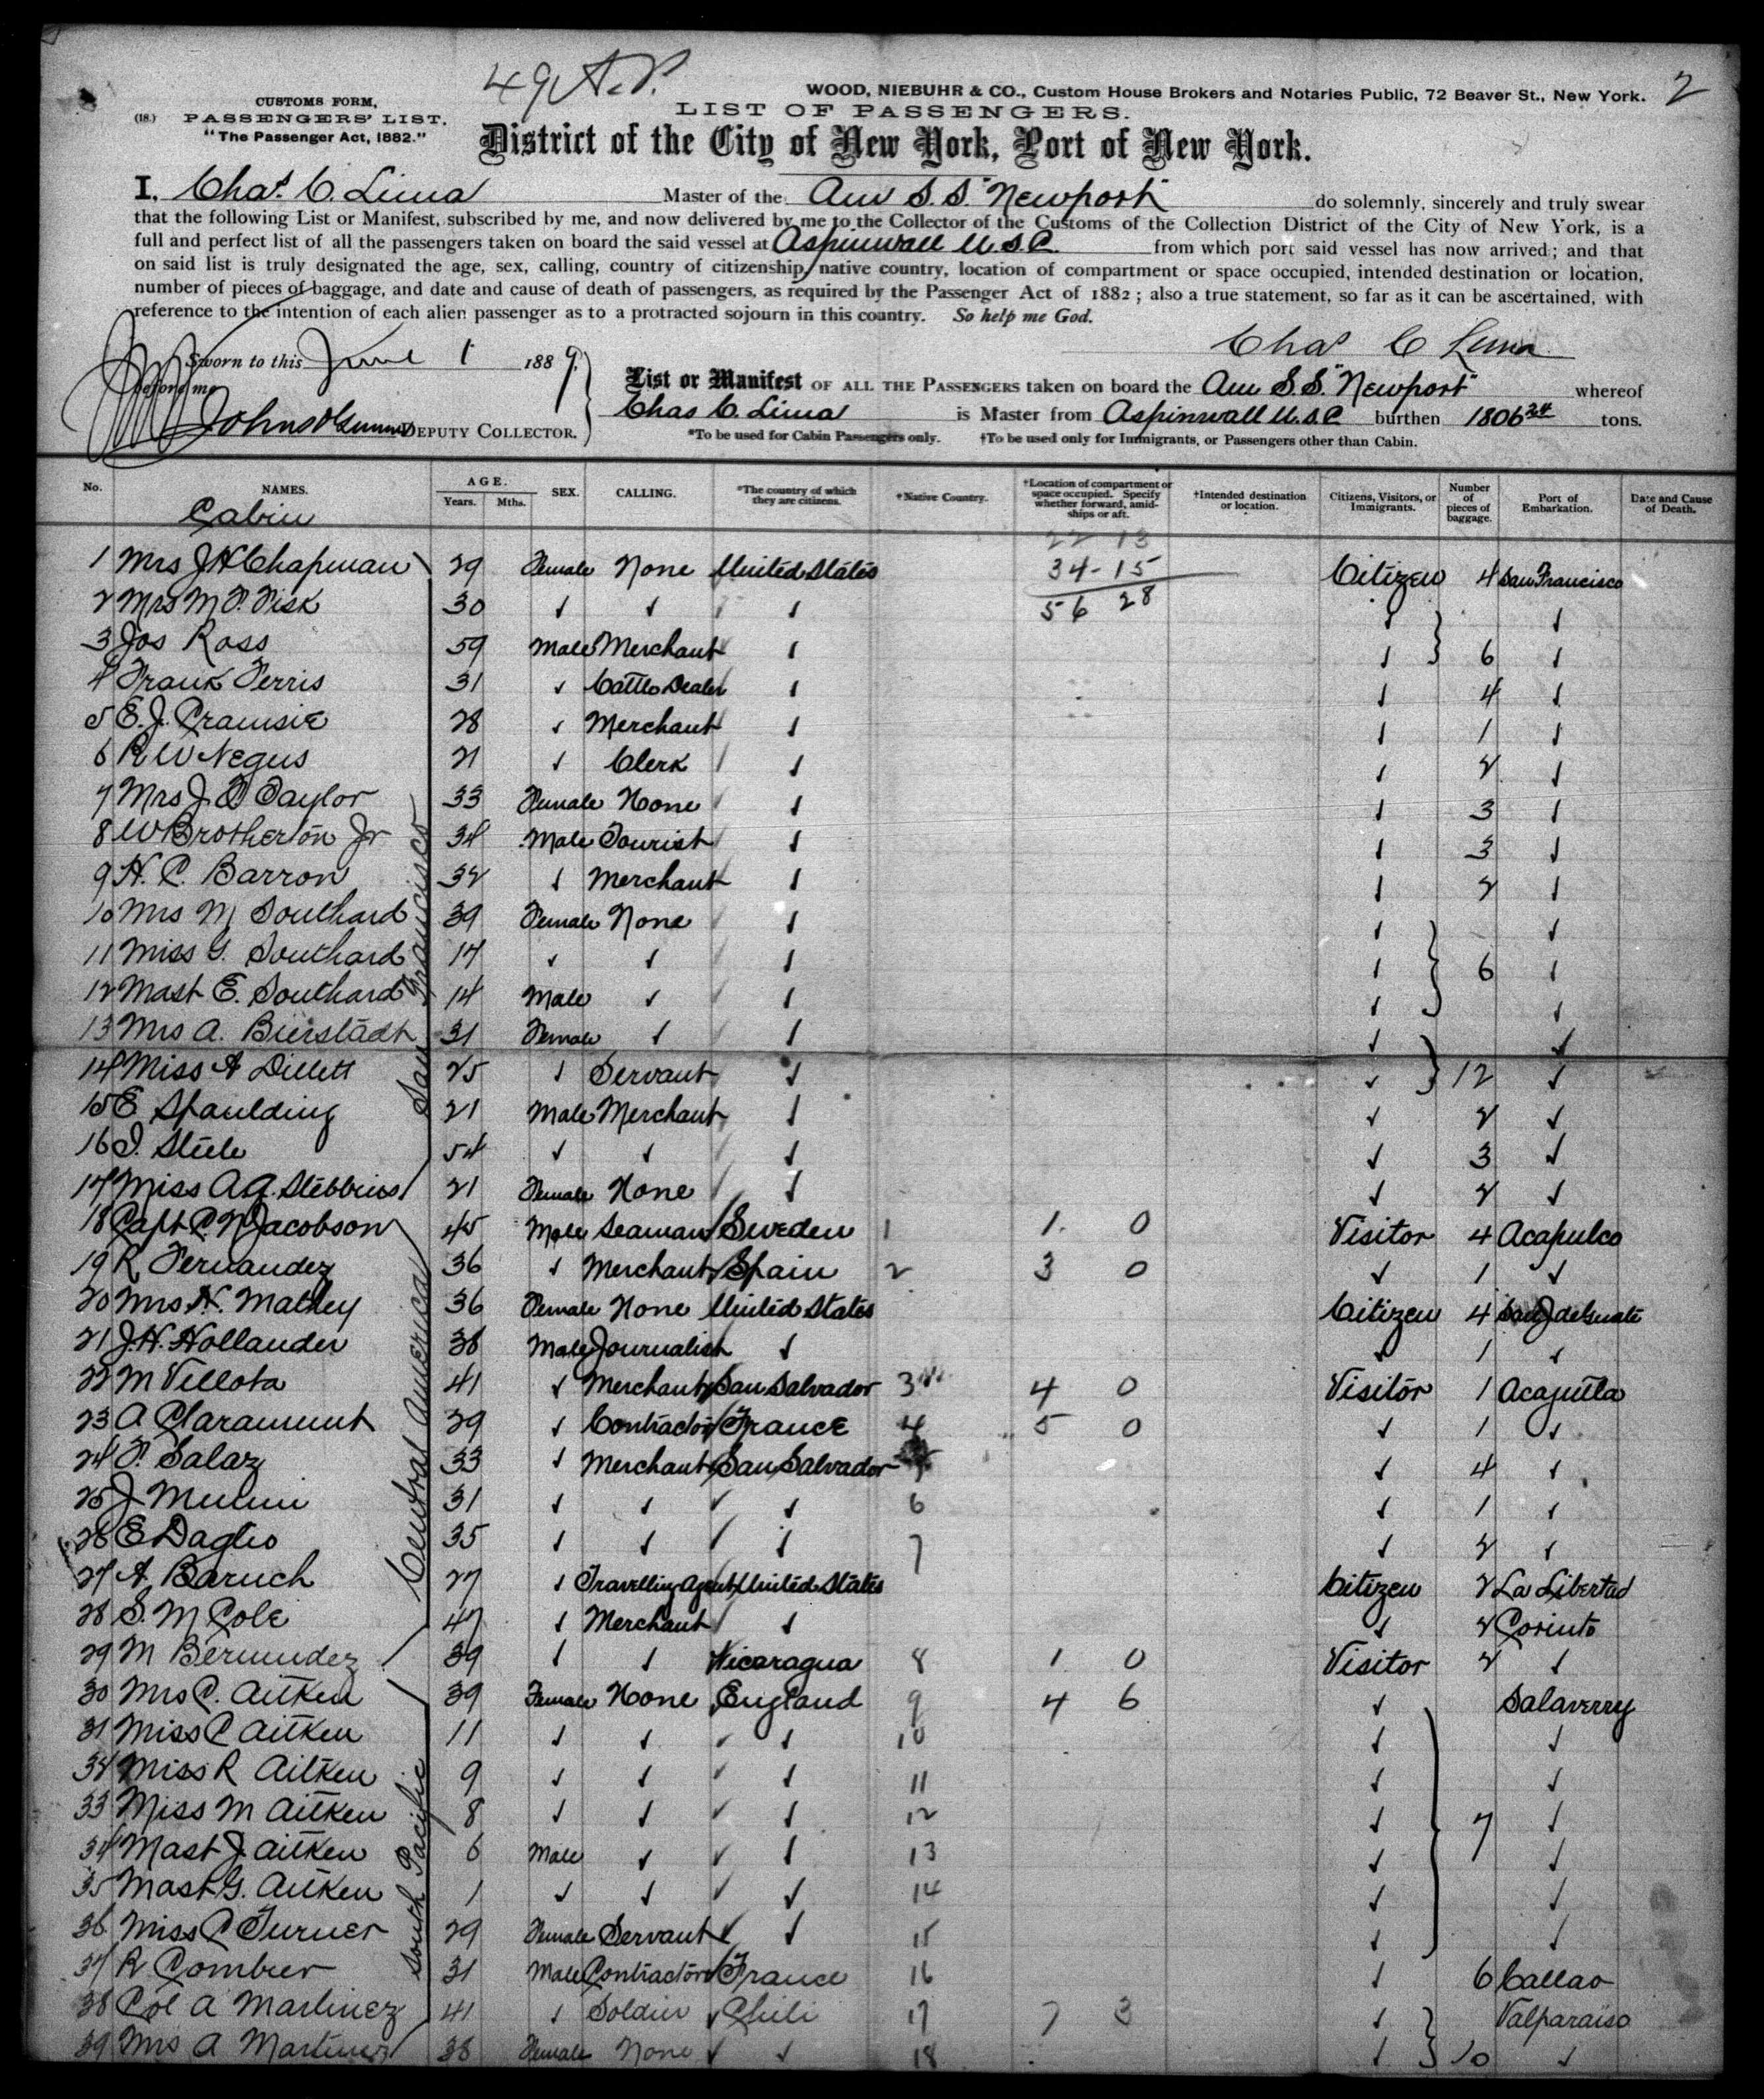 49 A.P.
2
WOOD, NIEBUHR & CO., Custom House Brokers and Notaries Public, 72 Beaver St., New York.
CUSTOMS FORM,
(18.) PASSENGERS' LIST.
"The Passenger Act, 1882."
LIST OF PASSENGERS.
District of the City of New York, Port of New York.
I, Chas. C. Lima Master of the Am S.S. "Newport" do solemnly, sincerely and truly swear
that the following List or Manifest, subscribed by me, and now delivered by me to the Collector of the Customs of the Collection District of the City of New York, is a
full and perfect list of all the passengers taken on board the said vessel at Aspinwall U.S.C. from which port said vessel has now arrived; and that
on said list is truly designated the age, sex, calling, country of citizenship, native country, location of compartment or space occupied, intended destination or location,
number of pieces of baggage, and date and cause of death of passengers, as required by the Passenger Act of 1882; also a true statement, so far as it can be ascertained, with
reference to the intention of each alien passenger as to a protracted sojourn in this country. So help me God.
Chas C Lima
Sworn to this June 1 1889.
before me
DEPUTY COLLECTOR.
List or Manifest OF ALL THE PASSENGERS taken on board the Am S.S. "Newport" whereof
Chas C. Lima is Master from Aspinwall U.S.C. burthen 1806 34 tons.
*To be used for Cabin Passengers only. †To be used only for Immigrants, or Passengers other than Cabin.
No. NAMES. AGE. Years. Mths. SEX. CALLING. *The country of which they are citizens. †Native Country. †Location of compartment or space occupied. Specify whether forward, amidships or aft. †Intended destination or location. Citizens, Visitors, or Immigrants. Number of pieces of baggage. Port of Embarkation. Date and Cause of Death.
Cabin
22 13
1 Mrs J H Chapman 29 Female None United States 34-15 Citizen 4 San Francisco
2 Mrs M. F. Fisk 30 ✓ ✓ ✓ 56 28 ✓ ✓
3 Jos Ross 59 Male Merchant ✓ ✓ 6 ✓
4 Frank Ferris 31 ✓ Cattle Dealer ✓ ✓ 4 ✓
5 E. J. Cramsie 28 ✓ Merchant ✓ ✓ 1 ✓
6 R W Negus 21 ✓ Clerk ✓ ✓ 2 ✓
7 Mrs J. D Taylor 33 Female None ✓ ✓ 3 ✓
8 W Brotherton Jr 34 Male Tourist ✓ ✓ 3 ✓
9 H. C. Barron 32 ✓ Merchant ✓ ✓ 2 ✓
10 Mrs M Southard 39 Female None ✓ ✓ ✓
11 Miss G. Southard 17 ✓ ✓ ✓ ✓ 6 ✓
12 Mast E. Southard 14 Male ✓ ✓ ✓ ✓
13 Mrs A. Bierstadt 31 Female ✓ ✓ ✓ ✓
14 Miss A Dillett 25 ✓ Servant ✓ ✓ 12 ✓
15 E Spaulding 21 Male Merchant ✓ ✓ 2 ✓
16 I. Steele 54 ✓ ✓ ✓ ✓ 3 ✓
17 Miss A. A. Stebbins 21 Female None ✓ ✓ 2 ✓
San Francisco
18 Capt C. N Jacobson 45 Male Seaman Sweden 1 1. 0 Visitor 4 Acapulco
19 R Fernandez 36 ✓ Merchant Spain 2 3 0 ✓ 1 ✓
20 Mrs N. Mathey 36 Female None United States Citizen 4 San J de Guate
21 J. H. Hollander 38 Male Journalist ✓ ✓ 1 ✓
22 M Villota 41 ✓ Merchant San Salvador 3 4 0 Visitor 1 Acajutla
23 A Claramunt 29 ✓ Contractor France 4 5 0 ✓ 1 ✓
24 F. Salaz 33 ✓ Merchant San Salvador ✓ 4 ✓
25 J 31 ✓ ✓ ✓ 6 ✓ 1 ✓
26 E Daglio 35 ✓ ✓ ✓ 7 ✓ 2 ✓
27 A Baruch 27 ✓ Travelling Agent United States Citizen 2 La Libertad
28 S. M Cole 47 ✓ Merchant ✓ ✓ 2 Corinto
29 M Bermudez 39 ✓ ✓ Nicaragua 8 1 0 Visitor 2 ✓
Central America
30 Mrs C. Aitken 39 Female None England 9 4 6 ✓ Salaverry
31 Miss C Aitken 11 ✓ ✓ ✓ 10 ✓ ✓
32 Miss R Aitken 9 ✓ ✓ ✓ 11 ✓ ✓
33 Miss M Aitken 8 ✓ ✓ ✓ 12 ✓ 7 ✓
34 Mast J. Aitken 6 Male ✓ ✓ 13 ✓ ✓
35 Mast G. Aitken 1 ✓ ✓ ✓ 14 ✓ ✓
36 Miss C Turner 29 Female Servant ✓ 15 ✓ ✓
37 R Combier 31 Male Contractor France 16 ✓ 6 Callao
38 Col A Martinez 41 ✓ Soldier Chili 17 7 3 ✓ Valparaiso
39 Mrs A Martinez 38 Female None ✓ 18 ✓ 10 ✓
South Pacific